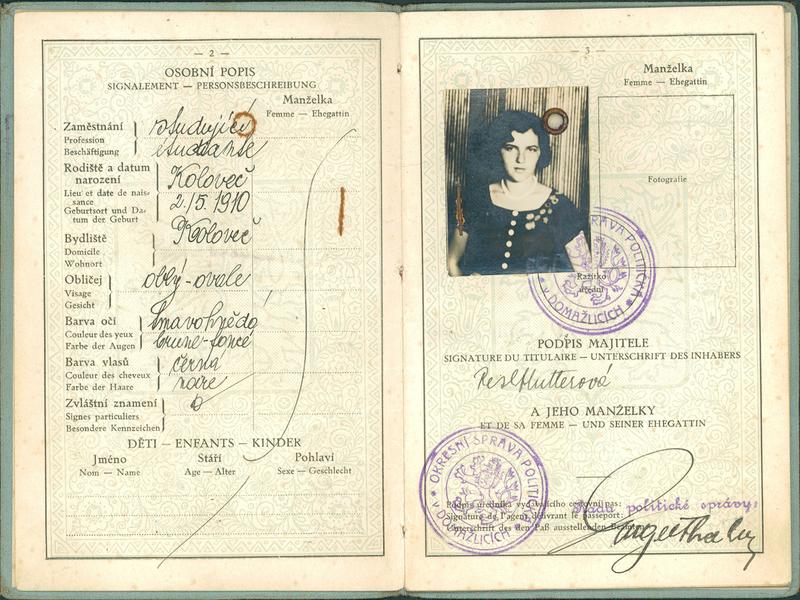 — 2 —
OSOBNÍ POPIS
SIGNALEMENT — PERSONSBESCHREIBUNG
Manželka
Femme — Ehegattin
Zaměstnání
Profession
Beschäftigung
studující
étudiante
Rodiště a datum
narození
Lieu et date de nais-
sance
Geburtsort und Da-
tum der Geburt
Koloveč
2./5. 1910
Bydliště
Domicile
Wohnort
Koloveč
Obličej
Visage
Gesicht
oblý - ovale
Barva očí
Couleur des yeux
Farbe der Augen
tmavohnědá
brune-foncé
Barva vlasů
Couleur des cheveux
Farbe der Haare
černá
noire
Zvláštní znamení
Signes particuliers
Besondere Kennzeichen
DĚTI — ENFANTS — KINDER
Jméno
Nom — Name
Stáří
Age — Alter
Pohlaví
Sexe — Geschlecht
— 3 —
Manželka
Femme — Ehegattin
Fotografie
Razítko
úřední
SPRÁVA POLITICKÁ
V DOMAŽLICÍCH
PODPIS MAJITELE
SIGNATURE DU TITULAIRE — UNTERSCHRIFT DES INHABERS
Hutterová
A JEHO MANŽELKY
ET DE SA FEMME — UND SEINER EHEGATTIN
OKRESNÍ SPRÁVA POLITICKÁ
V DOMAŽLICÍCH
Podpis úředníka vydávajícího cestovní pas:
Signature de l'agent délivrant le passeport:
Unterschrift des den Paß ausstellenden Beamten:
rada politické správy: